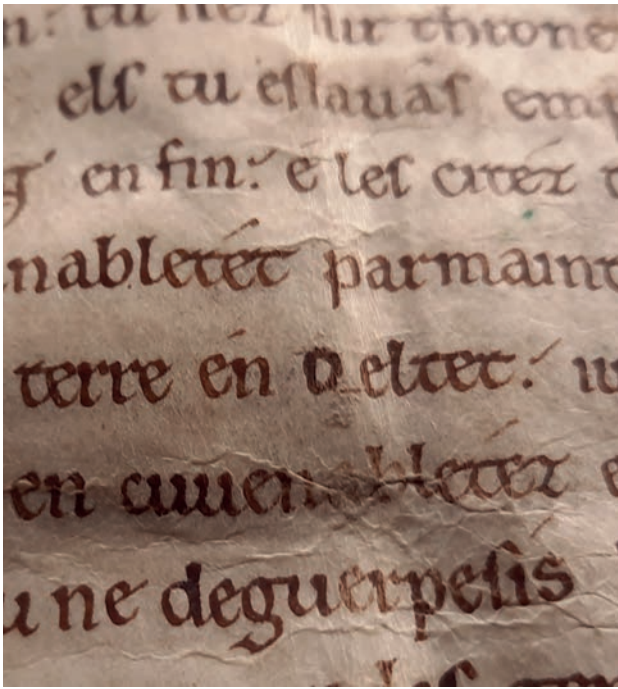 tu ſiez ſur throne
elſ tu eſlauáſ emp
en fin: é leſ citéz
nabletét parmaint
terre én oeltet: iu
en cuuenabletéz e
u ne deguerpeſís